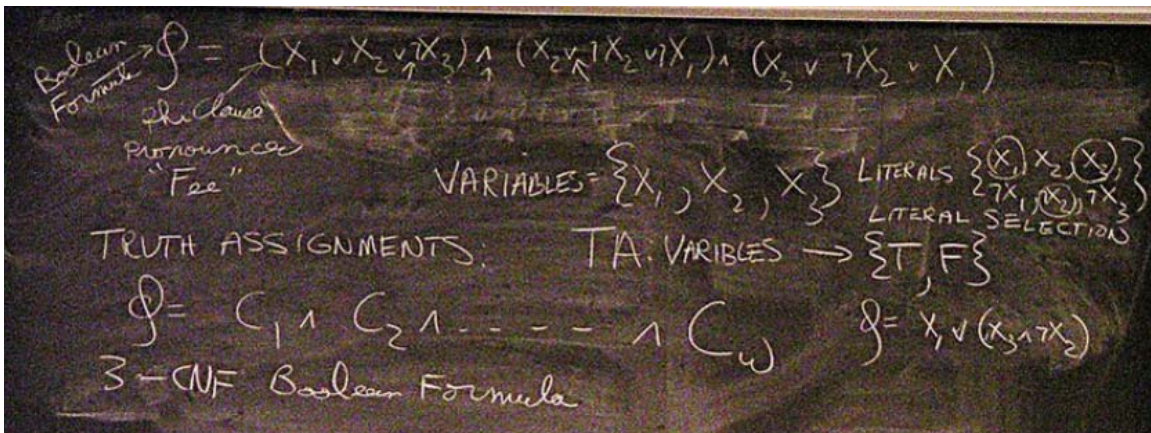 Boolean Formula φ = (X₁ ∨ X₂ ∨ ¬X₃) ∧ (X₂ ∨ ¬X₂ ∨ ¬X₁) ∧ (X₃ ∨ ¬X₂ ∨ X₁)
phi Clause
pronounced
"Fee"
VARIABLES = {X₁, X₂, X₃} LITERALS {X₁, X₂, X₃,
¬X₁, ¬X₂, ¬X₃}
LITERAL SELECTION
TRUTH ASSIGNMENTS: TA: VARIBLES → {T, F}
φ = C₁ ∧ C₂ ∧ ----- ∧ C_w φ = X₁ ∨ (X₃ ∧ ¬X₂)
3-CNF Boolean Formula